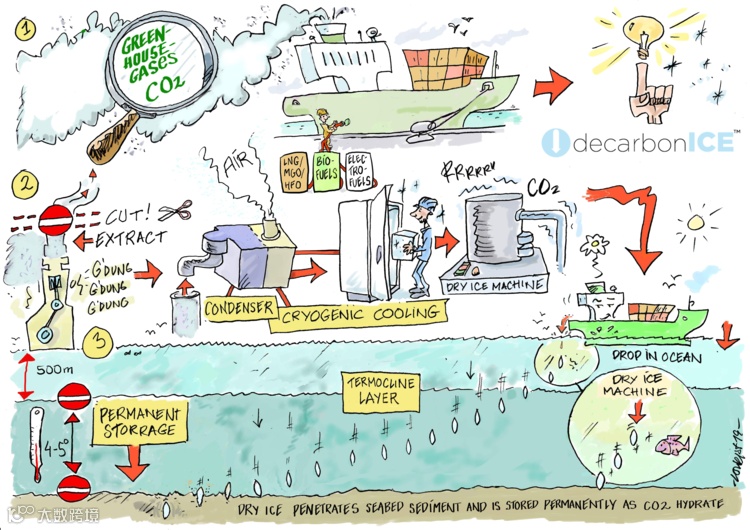 1
GREEN-
HOUSE-
GASES
CO2
decarbonICE™
LNG/
MGO/
HFO
BIO-
FUELS
ELEC-
TRO-
FUELS
2
CUT!
EXTRACT
G'DUNG
G'DUNG
G'DUNG
AIR
CONDENSER
CRYOGENIC COOLING
RRRRRR
CO2
DRY ICE MACHINE
3
500m
DROP IN OCEAN
DRY ICE
MACHINE
TERMOCLINE
LAYER
PERMANENT
STORRAGE
4-5°
DRY ICE PENETRATES SEABED SEDIMENT AND IS STORED PERMANENTLY AS CO2 HYDRATE
大数跨境